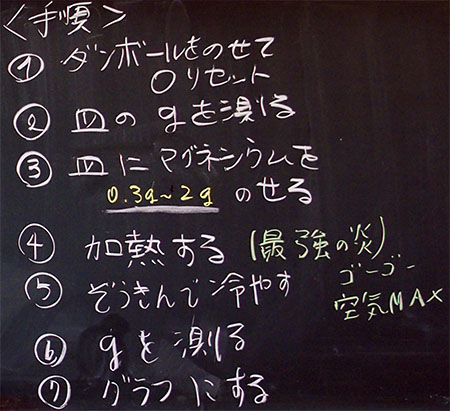 <手順>
① ダンボールをのせて
0リセット
② 皿のgを測る
③ 皿にマグネシウムを
0.3g~2gのせる
④ 加熱する(最強の炎)
ゴーゴー
⑤ ぞうきんで冷やす
空気MAX
⑥ gを測る
⑦ グラフにする